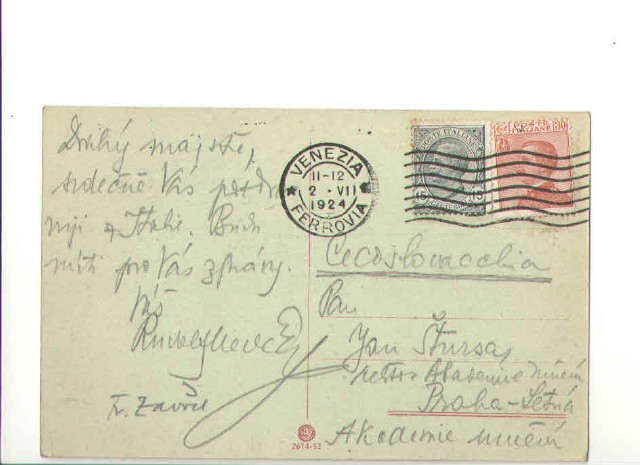 Drahý mistře,
srdečně Vás pozdra
vuji z Italie. Budu
míti pro Vás zprávy.
Váš
Fr. Závř
VENEZIA
11-12
2 · VII
1924
FERROVIA
POSTE ITALIANE
30
Cecoslovacchia
Pan
Jan Štursa,
rektor Akademie umění
Praha-Letná
Akademie umění
2614-52